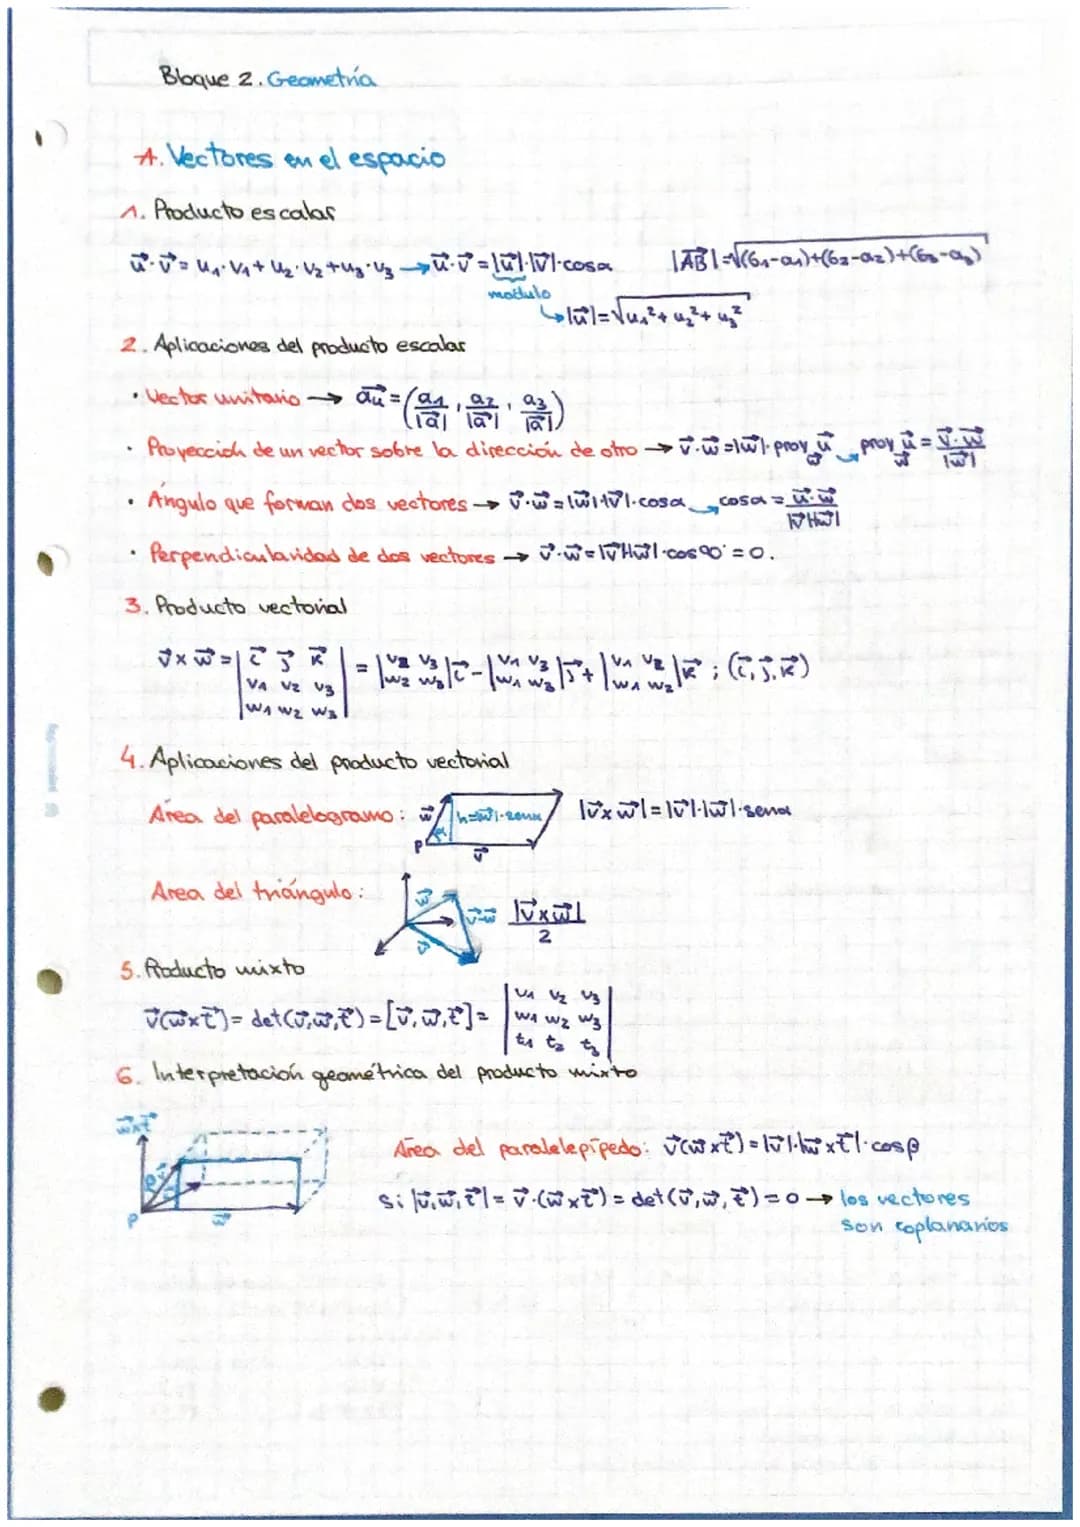 Bloque 2. Geometría
A. Vectores en el espacio
1. Producto escalar
u⃗·v⃗ = u₁·v₁ + u₂·v₂ + u₃·v₃ → u⃗·v⃗ = |u⃗|·|v⃗|·cosα |AB⃗| = √(b₁-a₁)+(b₂-a₂)+(b₃-a₃)
módulo
↳ |u⃗| = √u₁² + u₂² + u₃²
2. Aplicaciones del producto escalar
· Vector unitario → a⃗u = (a₁/|a⃗|, a₂/|a⃗|, a₃/|a⃗|)
· Proyección de un vector sobre la dirección de otro → v⃗·w⃗ = |w⃗|·proy_w⃗ u⃗ → proy_w⃗ u⃗ = v⃗·w⃗/|w⃗|
· Ángulo que forman dos vectores → v⃗·w⃗ = |w⃗|·|v⃗|·cosα → cosα = u⃗·w⃗/|v⃗|·|w⃗|
· Perpendicularidad de dos vectores → v⃗·w⃗ = |v⃗|·|w⃗|·cos90° = 0.
3. Producto vectorial
v⃗ x w⃗ = |i⃗ j⃗ k⃗| = |v₂ v₃| i⃗ - |v₁ v₃| j⃗ + |v₁ v₂| k⃗ ; (i⃗, j⃗, k⃗)
|v₁ v₂ v₃| |w₂ w₃| |w₁ w₃| |w₁ w₂|
|w₁ w₂ w₃|
4. Aplicaciones del producto vectorial
Área del paralelogramo: w⃗ h=|w⃗|·senα |v⃗ x w⃗| = |v⃗|·|w⃗|·senα
P α v⃗
Área del triángulo: w⃗ v⃗-w⃗ v⃗ |v⃗ x w⃗|/2
5. Producto mixto
v⃗(w⃗ x t⃗) = det(v⃗, w⃗, t⃗) = [v⃗, w⃗, t⃗] = |v₁ v₂ v₃|
|w₁ w₂ w₃|
|t₁ t₂ t₃|
6. Interpretación geométrica del producto mixto
w⃗xt⃗
Área del paralelepípedo: v⃗(w⃗ x t⃗) = |v⃗|·|w⃗ x t⃗|·cosβ
Si |v⃗, w⃗, t⃗| = v⃗·(w⃗ x t⃗) = det(v⃗, w⃗, t⃗) = 0 → los vectores
son coplanarios
P w⃗